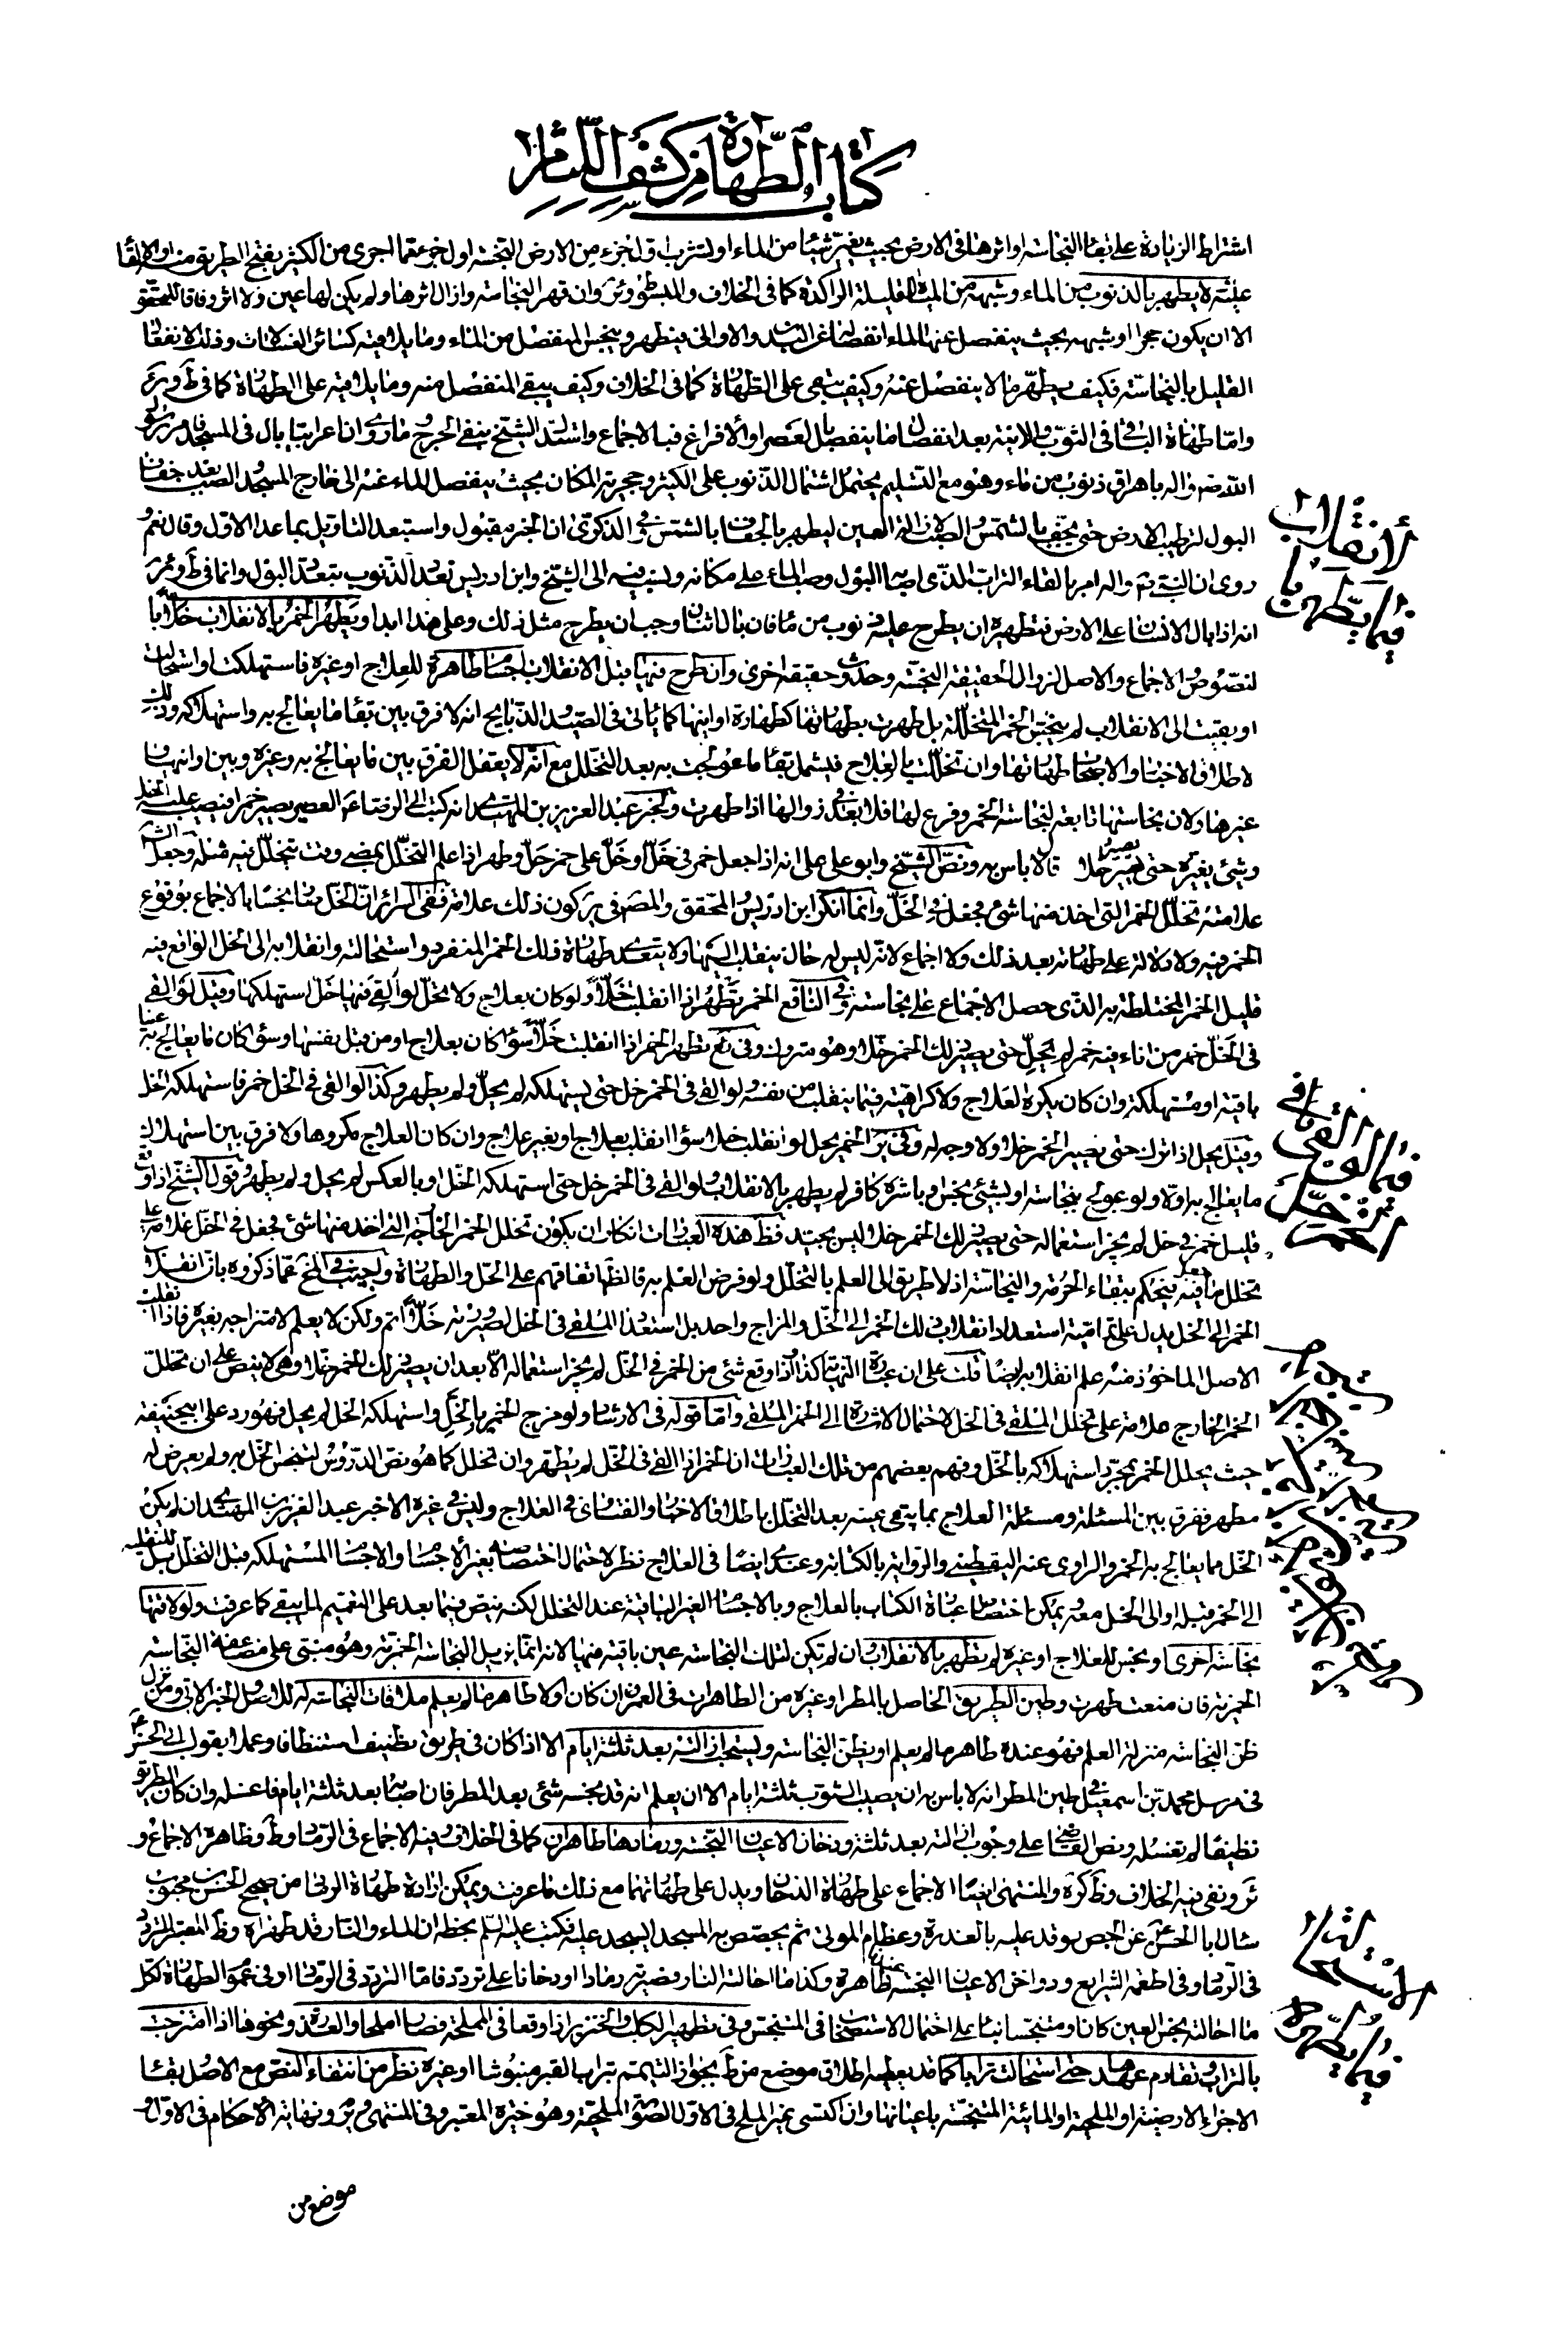 كتاب الطهارة من كشف اللثام
اشتراط الزيادة على بقاء النجاسة او اثرها في الارض بحيث يغير شيئا من الماء او لشرب اول جزء من الارض النجسة اول جزء
عليه لا يطهر بالذنوب من الماء وشبهه من المياه القليلة الراكدة كما في الخلاف والمبسوط وئر وان قهر النجاسة وازال اثرها ولم يكن لها عين ولا اثر وفاقا للمحقق
الا ان يكون حجرا او شبهه بحيث ينفصل عنها الماء انفصاله عن البدن والاواني فيطهر وينجس المنفصل من الماء وما يلاقيه كسائر الغسالات وذلك لانفعال
القليل بالنجاسة فكيف يطهر ما لا ينفصل عنه وكيف يبقى على الطهارة كما في الخلاف وكيف يبقى المنفصل منه وما يلاقيه على الطهارة كما في ط وئر
واما طهارة الباقي في الثوب والانية بعد انفصال ما ينفصل بالعصر او الافراغ فبالاجماع واستدل الشيخ بنفي الحرج وما روى ان اعرابيا بال في المسجد فامر رسول
الله ص واله باهراق ذنوب من ماء وهو مع التسليم يحتمل اشتمال الذنوب على الكثير وحجرية المكان بحيث ينفصل الماء عنه الى خارج المسجد والصب بعد جفاف
البول لترطيب الارض حتى يجففها الشمس والصب لازالة العين ليطهر بالجفاف بالشمس وفي الذكرى ان الخبر مقبول واستبعد التاويل بما عدا الاول وقال نعم
روى ان النبي ص واله امر بالقاء التراب الذي اصابه البول وصب الماء على مكانه ونسب فيه الى الشيخ وابن ادريس تعدد الذنوب بتعدد البول وانما في ط وئر
انه اذا بال الانسان على الارض فتطهيره ان يطرح عليه ذنوب من ماء فان بال اثنان وجب ان يطرح مثل ذلك وعلى هذا ابدا ويطهر الخمر بالانقلاب خلا
لنصوص والاجماع والاصل لزوال الحقيقة النجسة وحدوث حقيقة اخرى وان طرح فيها قبل الانقلاب اجسام طاهرة للعلاج او غيره فاستهلكت او استحالت
او بقيت الى الانقلاب لم ينجس الخمر المتخللة بل طهرت بطهارتها كطهارة اوانيها كما ياتي في الصيد والذبايح انه لا فرق بين بقاء ما يعالج به واستهلاكه وذلك
لاطلاق الاخبار والاجماع طهارتها وان تخللت بالعلاج فيشمل بقاء ما عولجت به بعد التخلل مع انه لا يعقل الفرق بين ما يعالج به وغيره وبين اوانيها
غيرها ولان نجاستها تابعة لنجاسة الخمر وفرع لها فلا بعد في زوالها اذا طهرت ولخبر عبد العزيز بن المهتدي انه كتب الى الرضا ع العصير يصير خمرا فيصب عليه الخل
وشيء يغيره حتى يصير خلا قال لا باس به ونص الشيخ وابو علي على انه اذا جعل خمر في خل او خل على خمر حل وطهر اذا علم التخلل بمضي وقت يتخلل فيه مثله وجعل الشيخ
علامته تخلل الخمر التي اخذ منها شيء فجعل في الخل وانما انكر ابن ادريس والمحقق والمصنف في ير كون ذلك علامة ففي السرائر ان الخل صار نجسا بالاجماع بوقوع
الخمر فيه ولا دلالة على طهارته بعد ذلك ولا اجماع لانه ليس له حال ينقلب اليها ولا يتعدى طهارة ذلك الخمر المنفرد واستحالته وانقلابه الى الخل الواقع فيه
قليل الخمر المختلطة به الذي حصل الاجماع على نجاسته وفي النافع الخمر تطهر اذا انقلبت خلا ولو كان بعلاج ولا يحل لو القي فيها خل استهلكها وقيل لو القي
في الخل خمر من اناء فيه خمر لم يحل حتى يصير تلك الخمر خلا وهو متروك وفي يع تطهر الخمر اذا انقلبت خلا سواء كان بعلاج او من قبل نفسها وسواء كان ما يعالج به عينا
باقية او مستهلكة وان كان يكره العلاج ولا كراهية فيما ينقلب من نفسه ولو القي في الخمر خل حتى يستهلكه لم يحل ولم يطهر وكذا لو القي في الخل خمر فاستهلكه الخل
وقيل يحل اذا ترك حتى يصير الخمر خلا ولا وجه له وفي ير الخمر يحل لو انقلب خلا سواء انقلب بعلاج او بغير علاج وان كان العلاج مكروها ولا فرق بين استهلاك
ما يعالج به او لا ولو عولج بنجاسة او بشيء نجس او باشره كافر لم يطهر بالانقلاب ولو القي في الخمر خل حتى استهلكه الخل او بالعكس لم يحل ولم يطهر وقول الشيخ اذا وقع
قليل خمر في خل لم يجز استعماله حتى يصير تلك الخمر خلا ليس بجيد فظ هذه العبارات انكار ان يكون تخلل الخمر الخارجة التي اخذ منها شيء فجعل في الخل علامة على
تخلل ما فيه فيحكم ببقاء الحرمة والنجاسة اذ لا طريق الى العلم بالتخلل ولو فرض العلم به فالظ اتفاقهم على الحل والطهارة واجيب في المخ عما ذكروه بان انقلاب
الخمر الى الخل يدل على تمامية استعداد انقلاب تلك الخمر الى الخل والمزاج واحد بل استعداد الملقى في الخل لصيرورته خلا اتم ولكن لا يعلم لامتزاجه بغيره فاذا انقلب
الاصل الماخوذ منه علم انقلابه ايضا قلت على ان عبارة النهاية كذا واذا وقع شيء من الخمر في الخل لم يجز استعماله الا بعد ان يصير تلك الخمر خلا وهي لا ينص على ان تخلل
الخمر الخارج علامة على تخلل الملقى في الخل لاحتمال الاشارة الى الخمر الملقى واما قوله في الارشاد ولو مزج الخمر بالخل واستهلكه الخل لم يحل فهو رد على ابيحنيفة
حيث يحلل الخمر بمجرد استهلاكه بالخل وفهم بعضهم من تلك العبارات ان الخمر اذا القي في الخل لم يطهر وان تخلل كما هو نص الدروس لتنجس الخل به ولم يعرض له
مطهر ففرق بين المسئلة ومسئلة العلاج بما يبقى عينه بعد التخلل باطلاق الاخبار والفتاوى في العلاج وليس في غيره الا خبر عبد العزيز بن المهتدي ان لم يكن
الخل مما يعالج به الخمر والراوي عنه اليقطيني والرواية بالكتابة وعندي ايضا في العلاج نظر لاحتمال اختصاصه بغير الاجسام والاجسام المستهلكة قبل التخلل بل المنقلبة
الى الخمر قبله او الى الخل معه يمكن اختصاص عبارة الكتاب بالعلاج وبالاجسام الغير الباقية عند التخلل لكنه ينص فيما بعد على التعميم لما يبقى كما عرفت ولو لاقتها
نجاسة اخرى او نجس للعلاج او غيره لم يطهر بالانقلاب ان لم تكن لتلك النجاسة عين باقية فيها لانه انما يزيل النجاسة الخمرية وهو مبتن على مضاعفة النجاسة
الخمرية فان منعت طهرت وطين الطريق الحاصل بالمطر او غيره من الطاهرات في العمران كان او لا طاهر ما لم يعلم ملاقات النجاسة له للاصل والخبر الاتي ومن نزل
ظن النجاسة منزلة العلم فهو عنده طاهر ما لم يعلم او يظن النجاسة ويستحب ازالته بعد ثلثة ايام الا اذا كان في طريق نظيف استنظافا وعملا بقول ابي الحسن ع
في مرسل محمد بن اسمعيل في طين المطر انه لا باس به ان يصيب الثوب ثلثة ايام الا ان يعلم انه قد نجسه شيء بعد المطر فان اصابه بعد ثلثة ايام فاغسله وان كان الطريق
نظيفا لم تغسله ونص القاضي على وجوب ازالته بعد ثلثة ودخان الاعيان النجسة ورمادها طاهران كما في الخلاف وفيه الاجماع في الرماد وط وظاهره الاجماع و
ئر ونفى فيه الخلاف وظ كره والمنتهى ايضا الاجماع على طهارة الدخان ويدل على طهارتهما مع ذلك ما عرفت ويمكن ارادة طهارة الرماد من صحيح الحسن بن محبوب
سال ابا الحسن ع عن الجص يوقد عليه بالعذرة وعظام الموتى ثم يجصص به المسجد ايسجد عليه فكتب عليه السلم بخطه ان الماء والنار قد طهراه وظ المعتبر التردد
في الرماد وفي اطعمة الشرايع ودواخن الاعيان النجسة طاهرة عندنا وكذا ما احالته النار وصيرته رمادا او دخانا على تردد فاما التردد في الرماد او في عموم الطهارة لكل
ما احالته نجس العين كان او متنجسا بناء على احتمال الاستصحاب في المتنجس وفي تطهير الكلب والخنزير اذا وقعا في المملحة فصارا ملحا والعذرة ونحوها اذا امتزجت
بالتراب وتقادم عهدها حتى استحالت ترابا كما قد يعطيه اطلاق موضع من ط بجواز التيمم بتراب القبر منبوشا او غيره نظر من انتفاء النص مع الاصل بقاء
الاجزاء الارضية او الملحية او المائية المتنجسة باعيانها وان اكتسى غير الملح في الاول الصورة الملحية وهو خيرة المعتبر وفي المنتهى وير ونهاية الاحكام في الاول و
موضع من
الانقلاب
فيما يطهر با
فيما القي في
الخمر خل
الاستحالة
فيما يطهر با